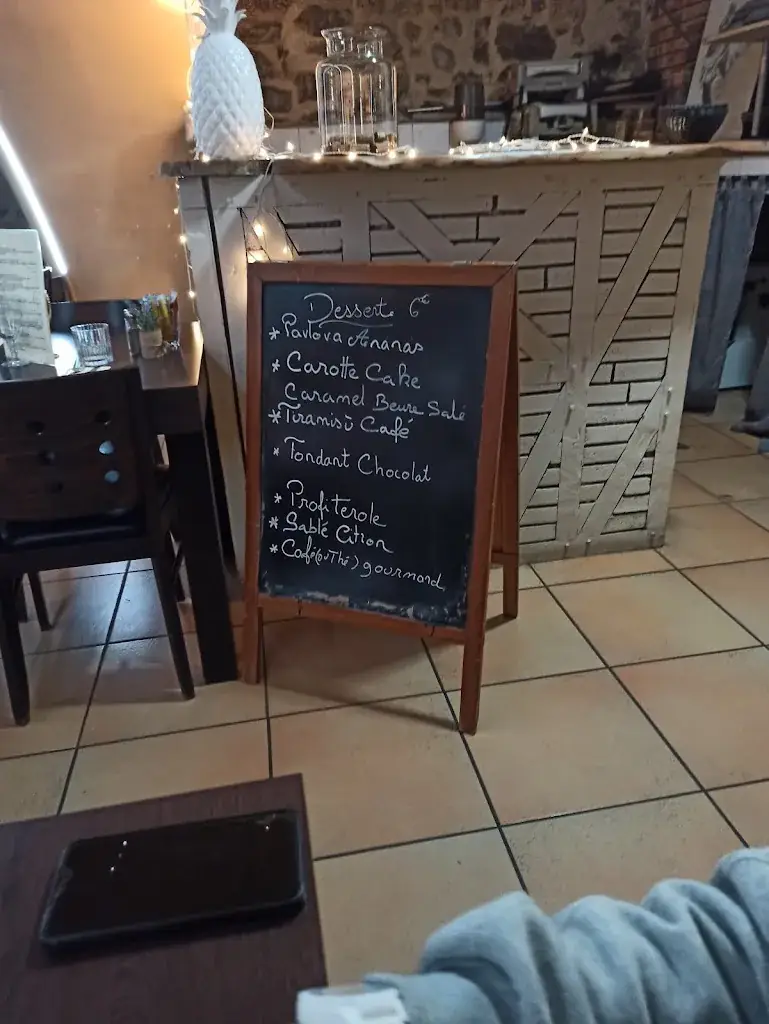 Dessert 6€
* Pavlova Ananas
* Carotte Cake
Caramel Beure Salé
* Tiramisù Café
* Fondant Chocolat
* Profiterole
* Sablé Citron
* Café (ou Thé) gourmand